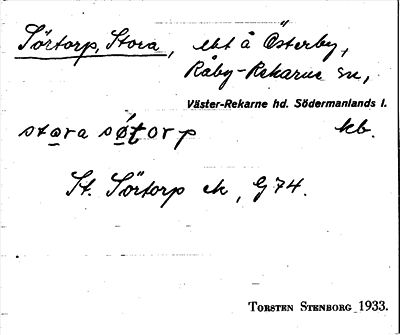 Sörtorp, Stora, ebt å Österby,
Råby-Rekarne sn,
Väster-Rekarne hd. Södermanlands l.
stora sǿtorp kb.
St. Sörtorp ek, G 74.
TORSTEN STENBORG 1933.